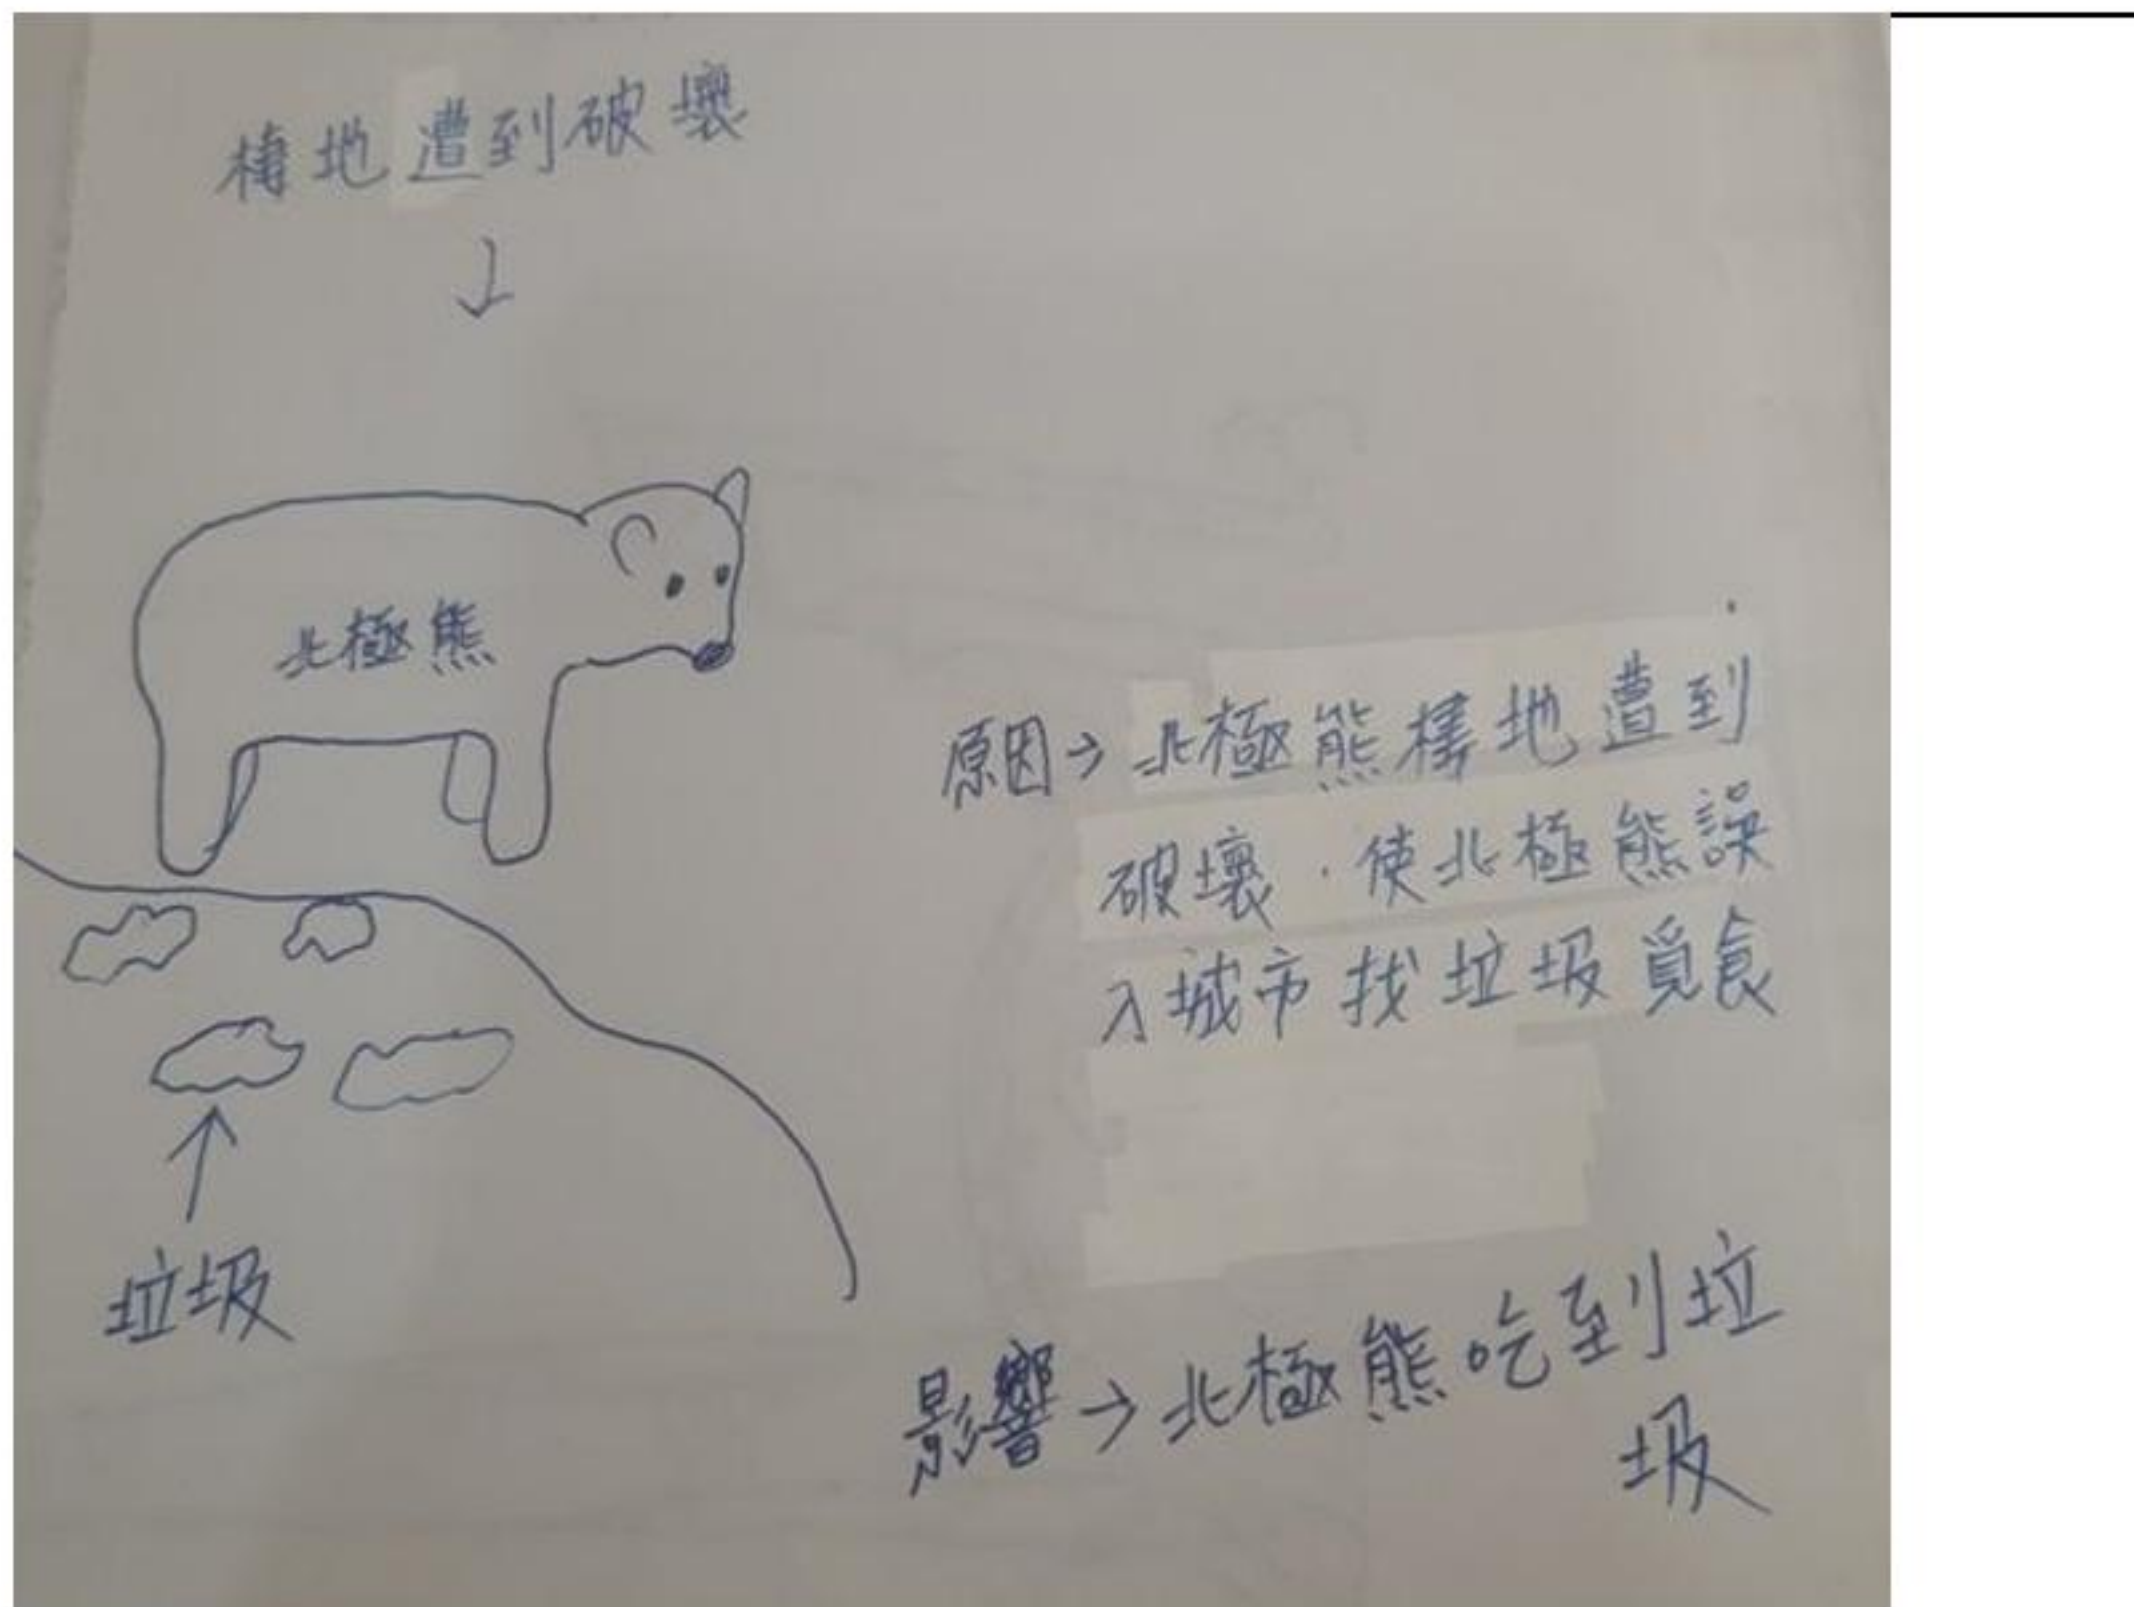 棲地遭到破壞
↓
北極熊
原因→北極熊棲地遭到
破壞．使北極熊誤
入城市找垃圾覓食
↑
垃圾
影響→北極熊吃到垃
圾